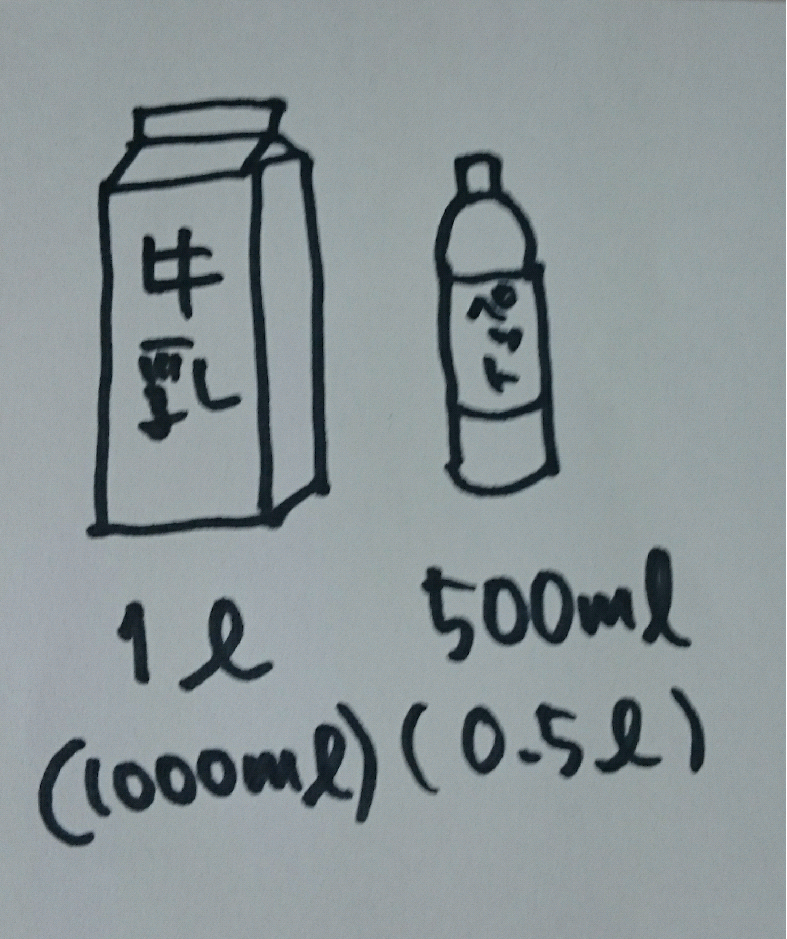 牛
乳
1ℓ
(1000mℓ)
500mℓ
(0.5ℓ)